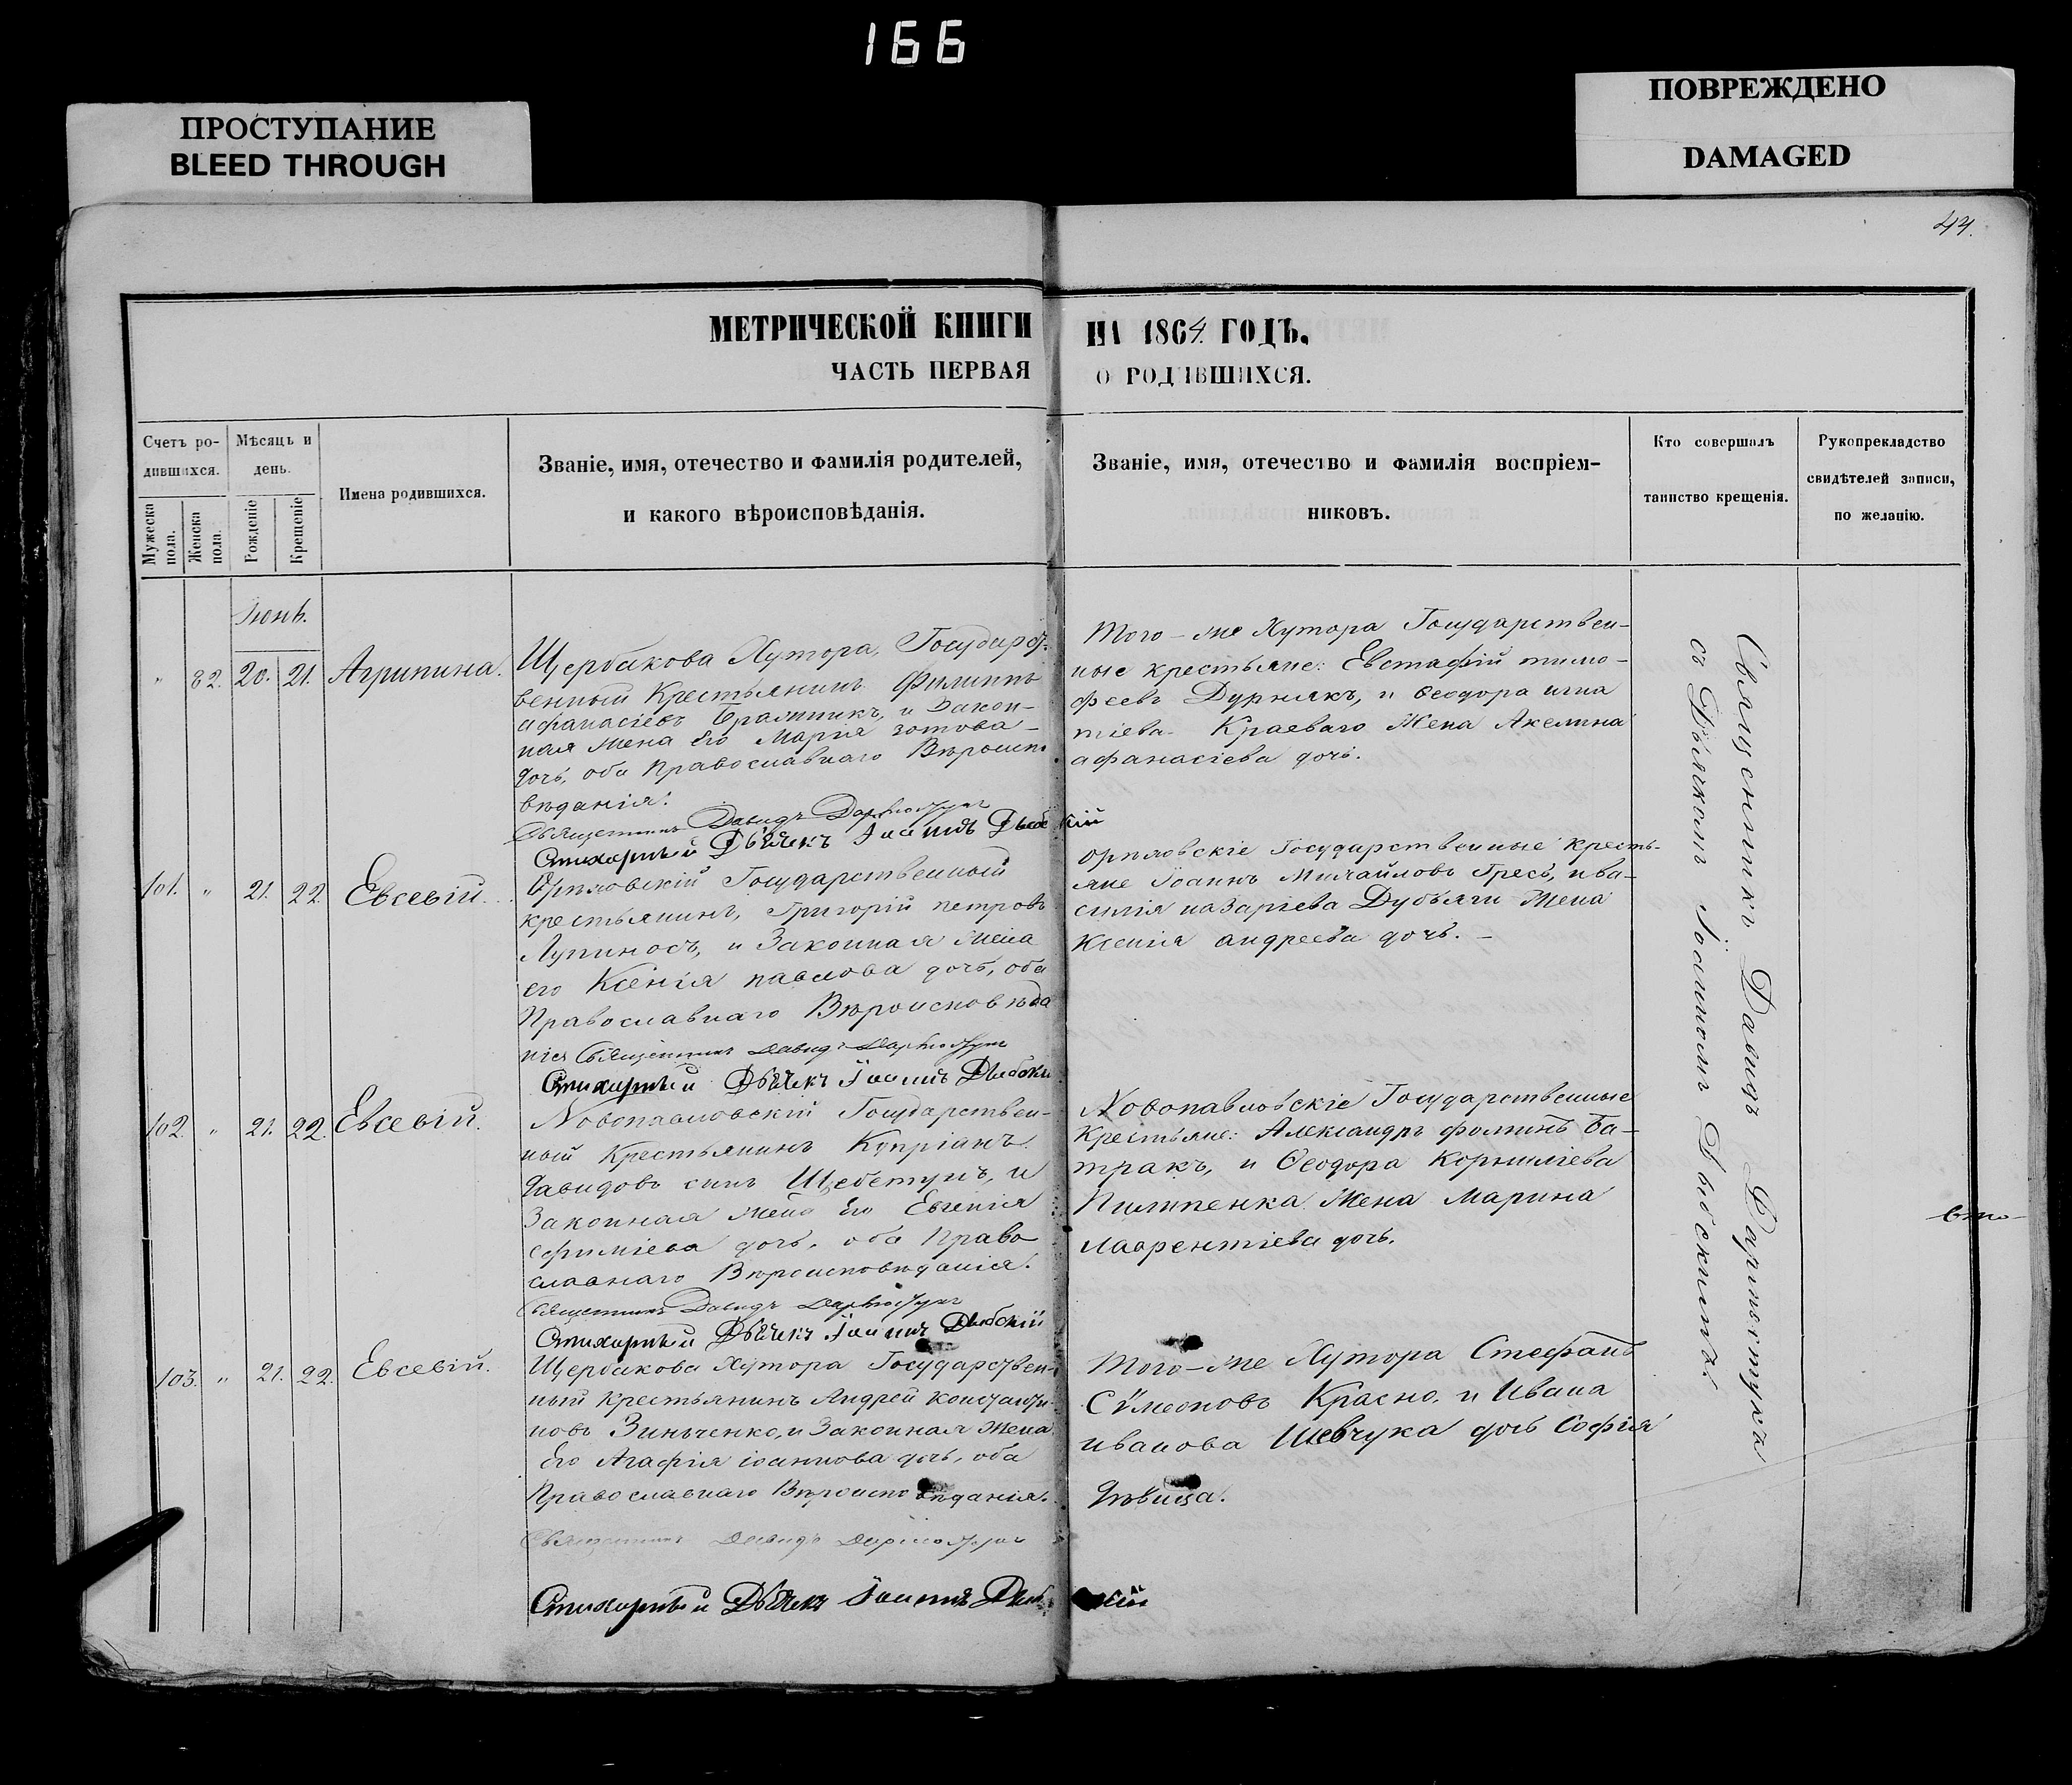 166
ПРОСТУПАНИЕ
BLEED THROUGH
ПОВРЕЖДЕНО
DAMAGED
44.
МЕТРИЧЕСКОЙ КНИГИ НА 1864 ГОДЪ,
ЧАСТЬ ПЕРВАЯ О РОДИВШИХСЯ.
Счетъ ро-
дившихся.
Мужеска
пола.
Женска
пола.
Мѣсяцъ и
день.
Рожденіе
Крещеніе
Имена родившихся.
Званіе, имя, отечество и фамилія родителей,
и какого вѣроисповѣданія.
Званіе, имя, отечество и фамилія воспріем-
никовъ.
Кто совершалъ
таинство крещенія.
Рукопрекладство
свидѣтелей записи,
по желанію.
Іюнь.
" 82. 20. 21. Агрипина.
Щербакова Хутора, Государст-
венный Крестьянинъ Филиппъ
афанасіевъ и Закон-
ная жена его Марія зотова
дочь, оба Православнаго Вѣроиспо
вѣданія.
Священникъ Давидъ
Стихарный Дьячекъ Іоаннъ
Того-же Хутора Государствен-
ные крестьяне: Евстафій тимо-
феевъ Дурнякъ, и Ѳеодора игна
тіева Краеваго Жена Акелина
афанасіева дочь.
101. " 21. 22. Евсевій.
Орловскій Государственный
крестьянинъ, Григорій петровъ
Лупиносъ, и Законная жена
его Ксенія павлова дочь, оба
Православнаго Вѣроисповѣда
нія Священникъ Давидъ
Стихарный Дьячекъ Іоаннъ
Орловскіе Государственные кресть-
яне Іоаннъ Михайловъ Гресь, и ва-
силія назаріева Дубъяги Жена
Ксенія андреева дочь.
102. " 21. 22. Евсевій.
Новопавловскій Государствен-
ный Крестьянинъ Купріанъ
давидовъ сынъ Щебетунъ, и
Законная жена его Евгенія
ефиміева дочь, оба Право
славнаго Вѣроисповѣданія.
Священникъ Давидъ
Стихарный Дьячекъ Іоаннъ
Новопавловскіе Государственные
Крестьяне: Александръ фоминъ Ба-
тракъ, и Ѳеодора Корниліева
Пилипенка Жена Марина
лаврентіева дочь.
103. " 21. 22. Евсевій.
Щербакова Хутора Государствен-
ный крестьянинъ Андрей константи-
новъ Зинченко, и Законная Жена
его Агафія іоаннова дочь, оба
Православнаго Вѣроисповѣданія.
Священникъ Давидъ
Стихарный Дьячекъ Іоаннъ
Того-же Хутора Стефанъ
Сѵмеоновъ Красно, и Ивана
иванова Шевчука дочь Софія
дѣвица.
Священникъ Давидъ
съ Дьячкомъ Іоанномъ